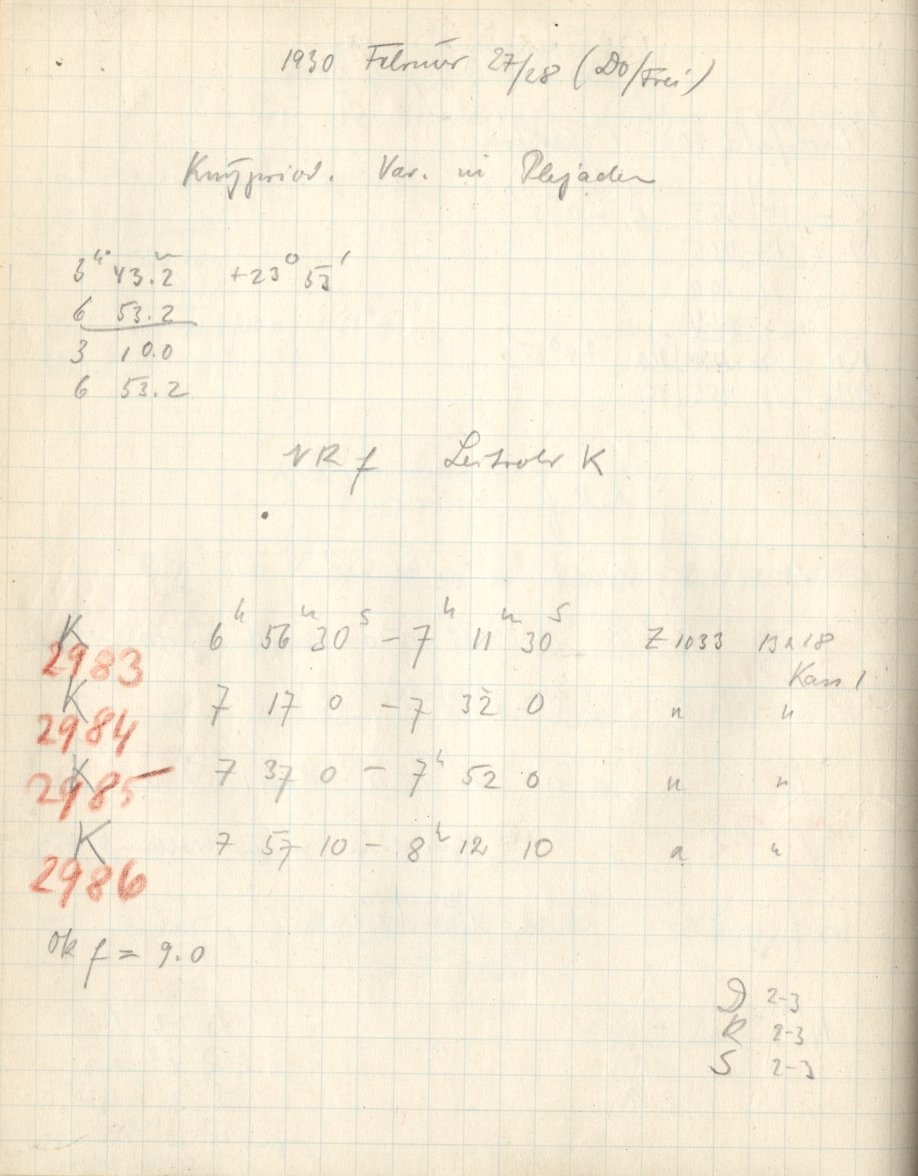 1930 Februar 27/28 (Do/Frei)
Kurzperiod. Var. in Plejaden
3ʰ 43.2ᵐ +23° 53'
6 53.2
3 10.0
6 53.2
NR f Leitrohr K
K 2983 6ʰ 56ᵐ 30ˢ – 7ʰ 11ᵐ 30ˢ Z 1033 13x18
Kass 1
K 2984 7 17 0 – 7 32 0 " "
K 2985 7 37 0 – 7ʰ 52 0 " "
K 2986 7 57 10 – 8ʰ 12 10 " "
Ok f = 9.0
D 2-3
R 2-3
S 2-3